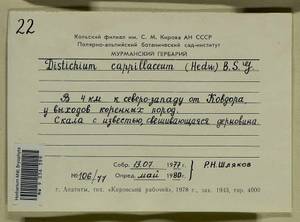 22
Кольский филиал им. С. М. Кирова АН СССР
Полярно-альпийский ботанический сад-институт
МУРМАНСКИЙ ГЕРБАРИЙ
Distichium cappillaceum (Hedw) B. S. G.
В 4 км к северо-западу от Ковдора,
у выходов коренных пород.
Скала с известью, свешивающаяся дерновина.
Собр. 13.07 1977 г.
Р.Н. Шляков
№ 106/77 Опред. май 1980 г.
г. Апатиты, тип. «Кировский рабочий», 1978 г., зак. 1943, тир. 4000